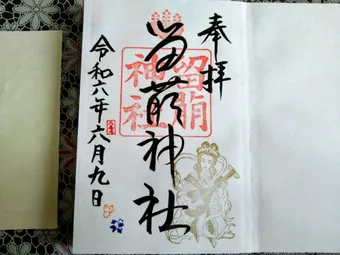 奉拝
留萌神社
留萌
神社
令和六年六月九日